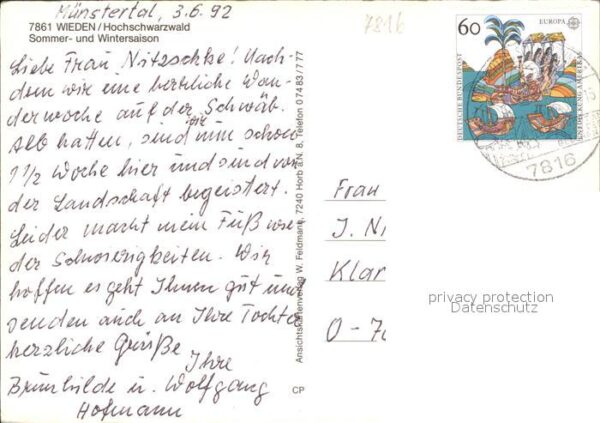 Münstertal, 3.6.92
7861 WIEDEN/Hochschwarzwald
Sommer- und Wintersaison
Liebe Frau Nitzschke! Nach-
dem wir eine herrliche Wan-
derwoche auf der Schwäb.
Alb hatten, sind wir nun schon
1 1/2 Woche hier und sind von
der Landschaft begeistert.
Leider macht mein Fuß wie-
der Schwierigkeiten. Wir
hoffen es geht Ihnen gut und
senden auch an Ihre Tochter
herzliche Grüße
Ihre
Brunhilde u. Wolfgang
Hofmann
Ansichtskartenverlag W. Feldmann, 7240 Horb a.N. 8, Telefon 07483/777
CP
7816
60
EUROPA
DEUTSCHE BUNDESPOST
ENTDECKUNG AMERIKAS
7816
Frau
J. Ni
Klar
O-70
privacy protection
Datenschutz